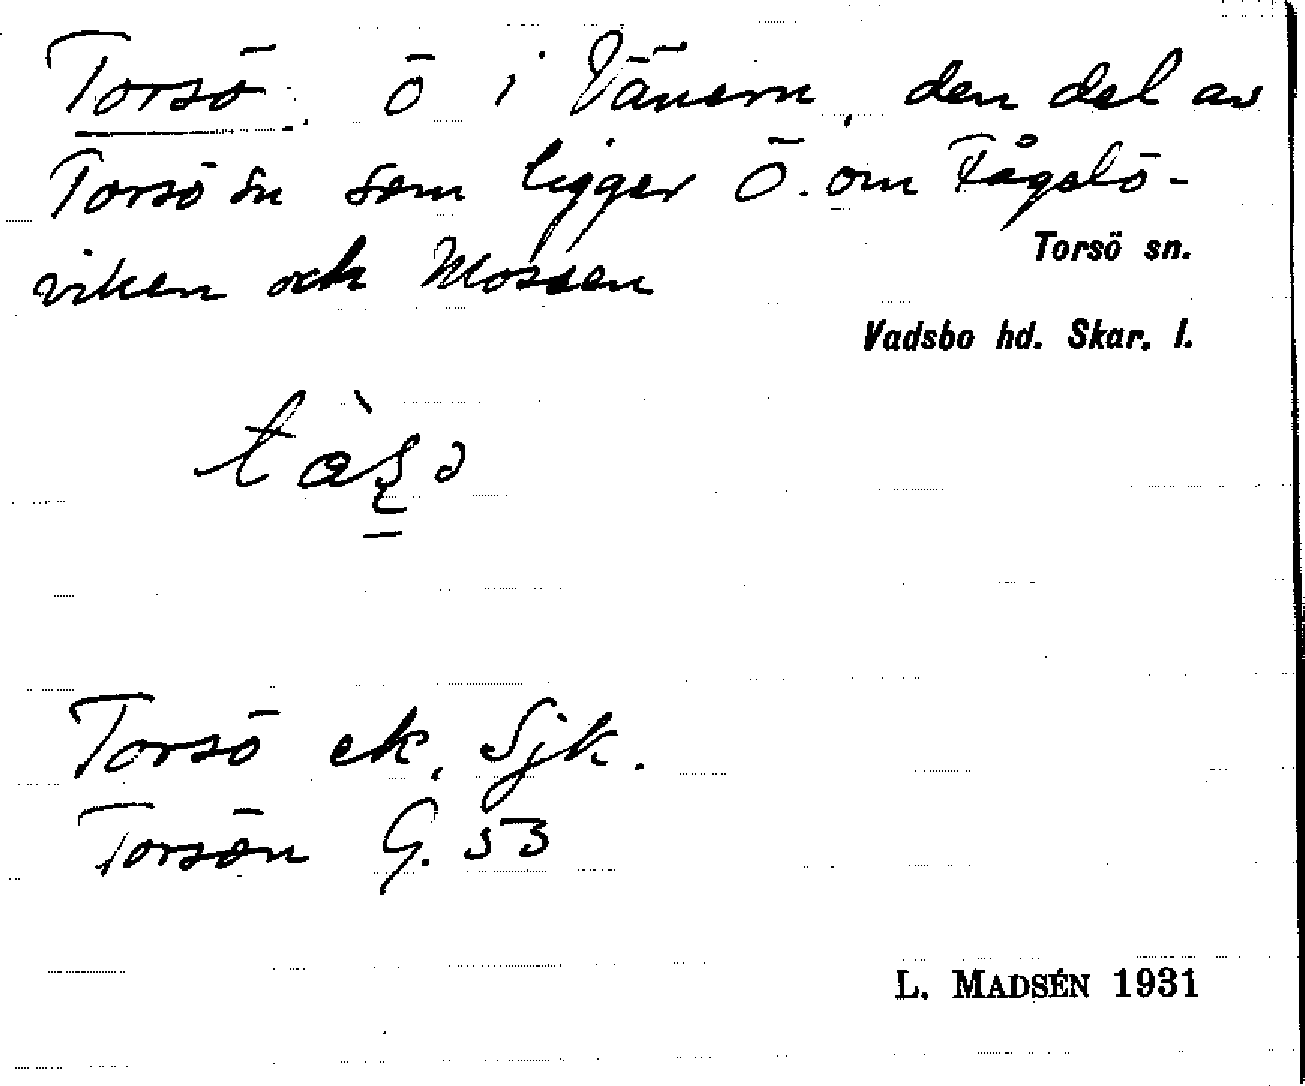 Torsö, ö i Vänern, den del av
Torsö sn som ligger Ö. om Fågelö-
viken och Mossen
Torsö sn.
Vadsbo hd. Skar. l.
Torsö ek, Sjk.
Torsön G. 53
L. MADSÉN 1931